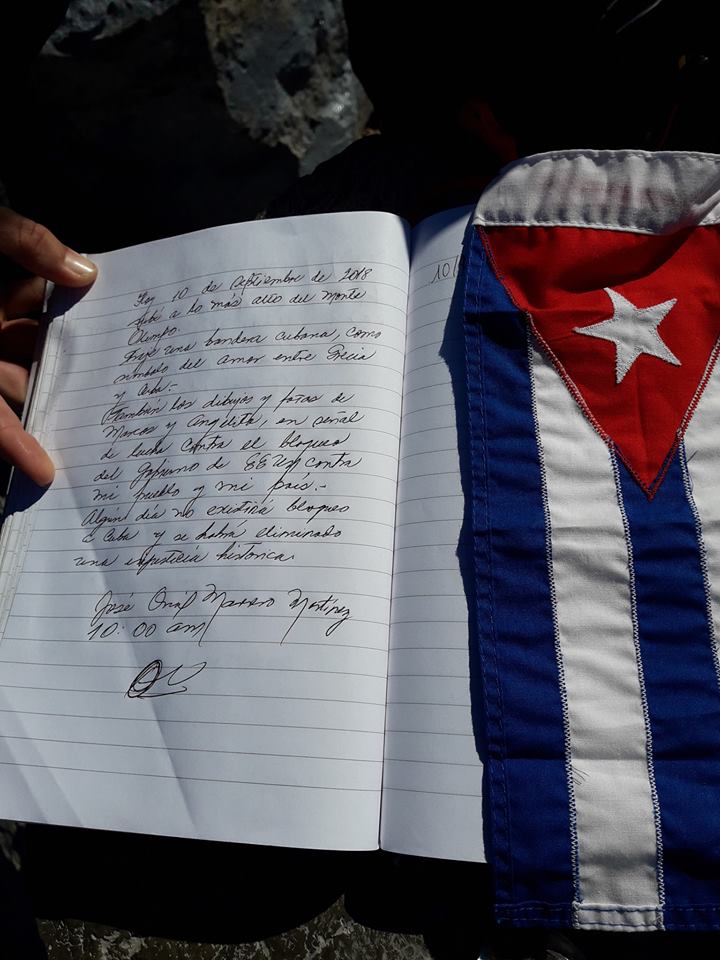 Hoy 10 de septiembre de 2018
subí a lo más alto del monte
Olimpo.
Traje una bandera cubana, como
símbolo del amor entre Grecia
y Cuba.-
También los dibujos y fotos de
Marcos y Angelita, en señal
de lucha contra el bloqueo
del gobierno de EEUU contra
mi pueblo y mi país.-
Algún día no existirá bloqueo
a Cuba y se habrá eliminado
una injusticia histórica.
José Oriol Marrero Martínez
10:00 am
10/